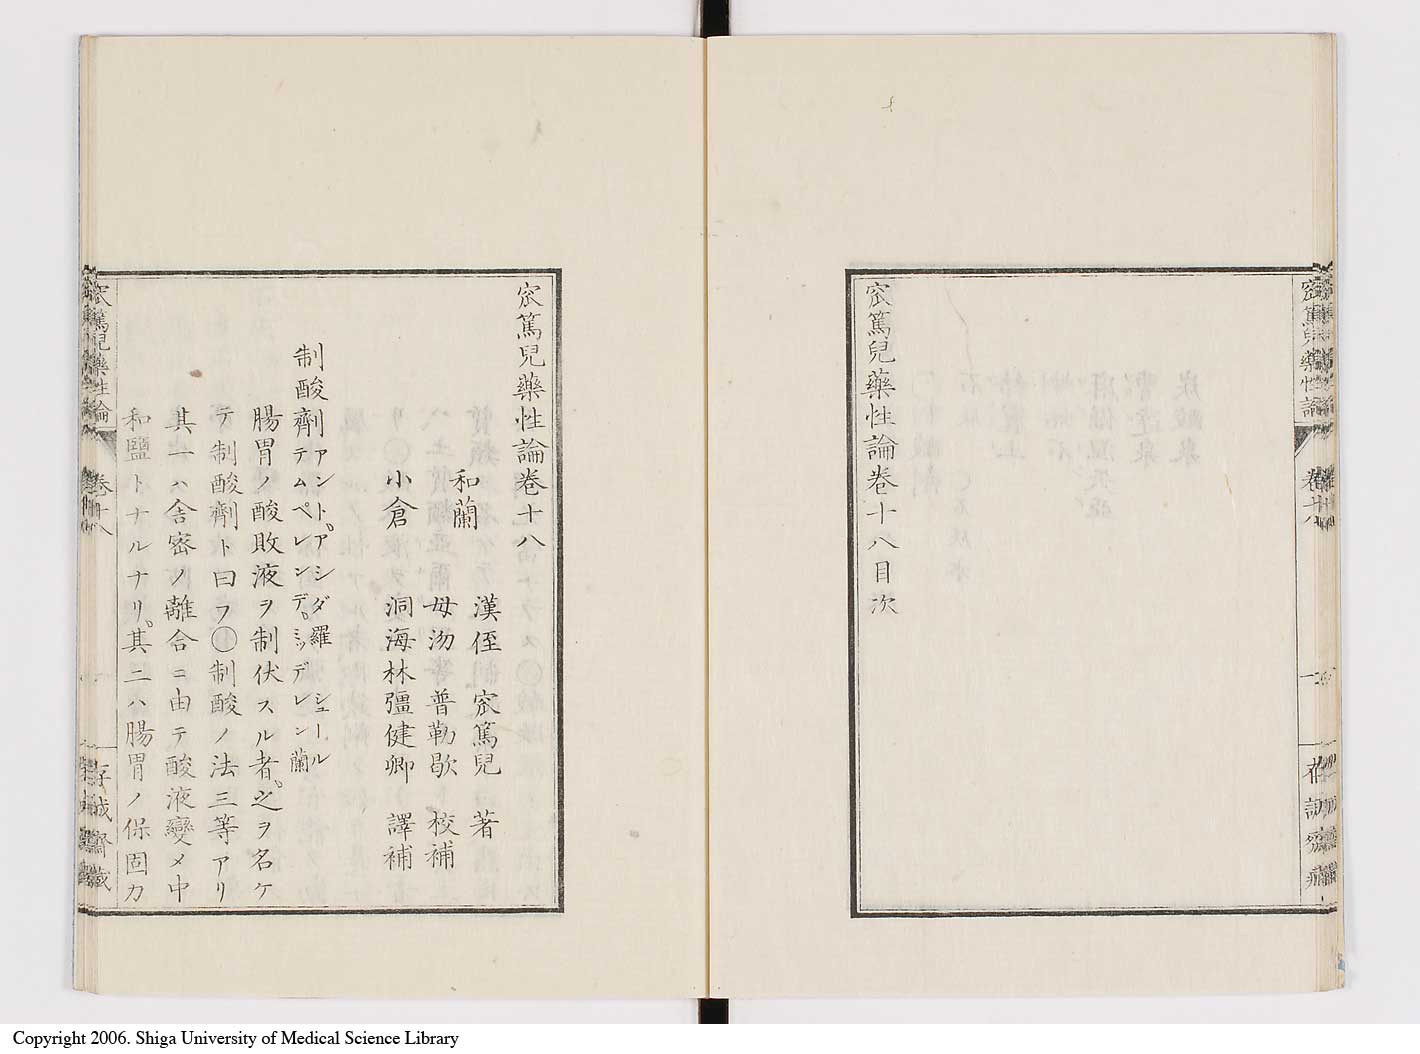 窊篤兒藥性論卷十八目次
窊篤兒藥性論
卷十八
窊篤兒藥性論卷十八
和蘭 漢侄 窊篤兒 著
母汤 普勒歇 校補
小倉 洞海林彊健卿 譯補
制酸劑アント゚アシダ羅 シュール
テムペレンデ゚ミッデレン蘭
腸胃ノ酸敗液ヲ制伏スル者。之ヲ名ケ
テ制酸劑ト曰フ㊀制酸ノ法三等アリ
其一ハ舎密ノ離合ニ由テ酸液變メ中
和鹽トナルナリ。其二ハ腸胃ノ保固力
窊篤兒藥性論
卷十八
存誠齋藏
Copyright 2006. Shiga University of Medical Science Library